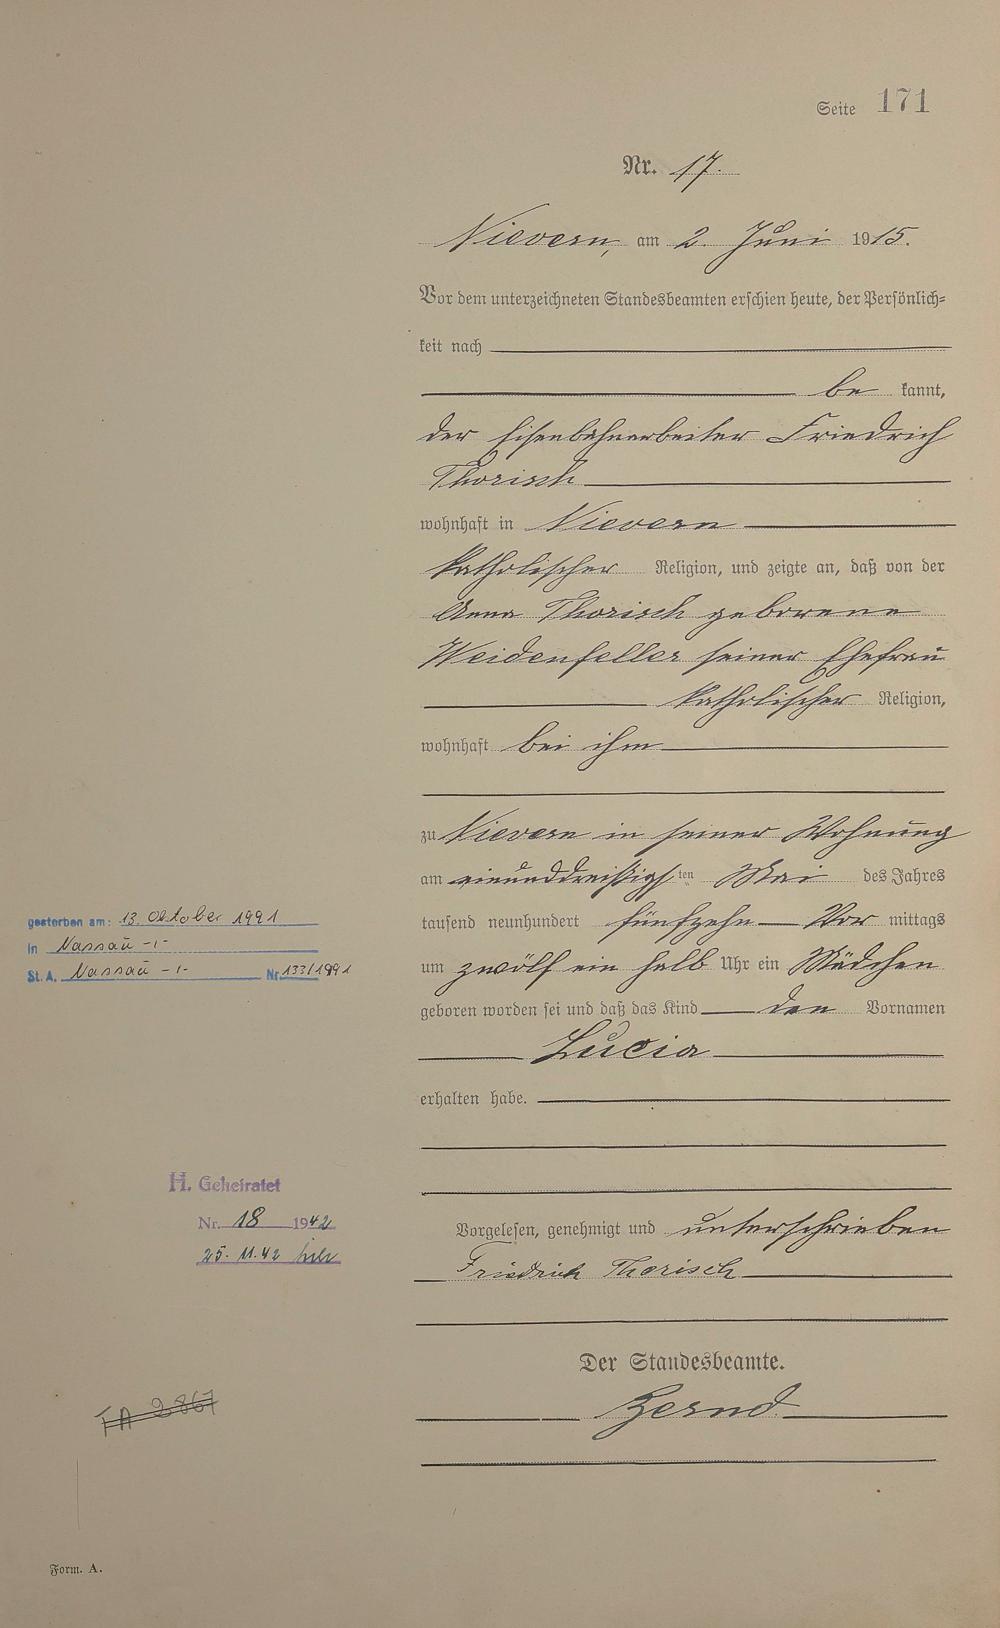 Seite 171
Nr. 17.
Nievern, am 2. Juni 1915.
Vor dem unterzeichneten Standesbeamten erschien heute, der Persönlich-
keit nach
be kannt,
der Eisenbahnarbeiter Friedrich
Thorisch
wohnhaft in Nievern
katholischer Religion, und zeigte an, daß von der
Anna Thorisch geborene
Weidenfeller seiner Ehefrau
katholischer Religion,
wohnhaft bei ihm
zu Nievern in seiner Wohnung
am einunddreißigsten Mai des Jahres
tausend neunhundert fünfzehn Vor mittags
um zwölf ein halb Uhr ein Mädchen
geboren worden sei und daß das Kind den Vornamen
Lucia
erhalten habe.
Vorgelesen, genehmigt und unterschrieben
Friedrich Thorisch
Der Standesbeamte.
gestorben am: 13. Oktober 1991
in Nassau -1-
St. A. Nassau -1- Nr 133/1991
H. Geheiratet
Nr. 18 1942
25. 11. 42
TA 2867
Form. A.